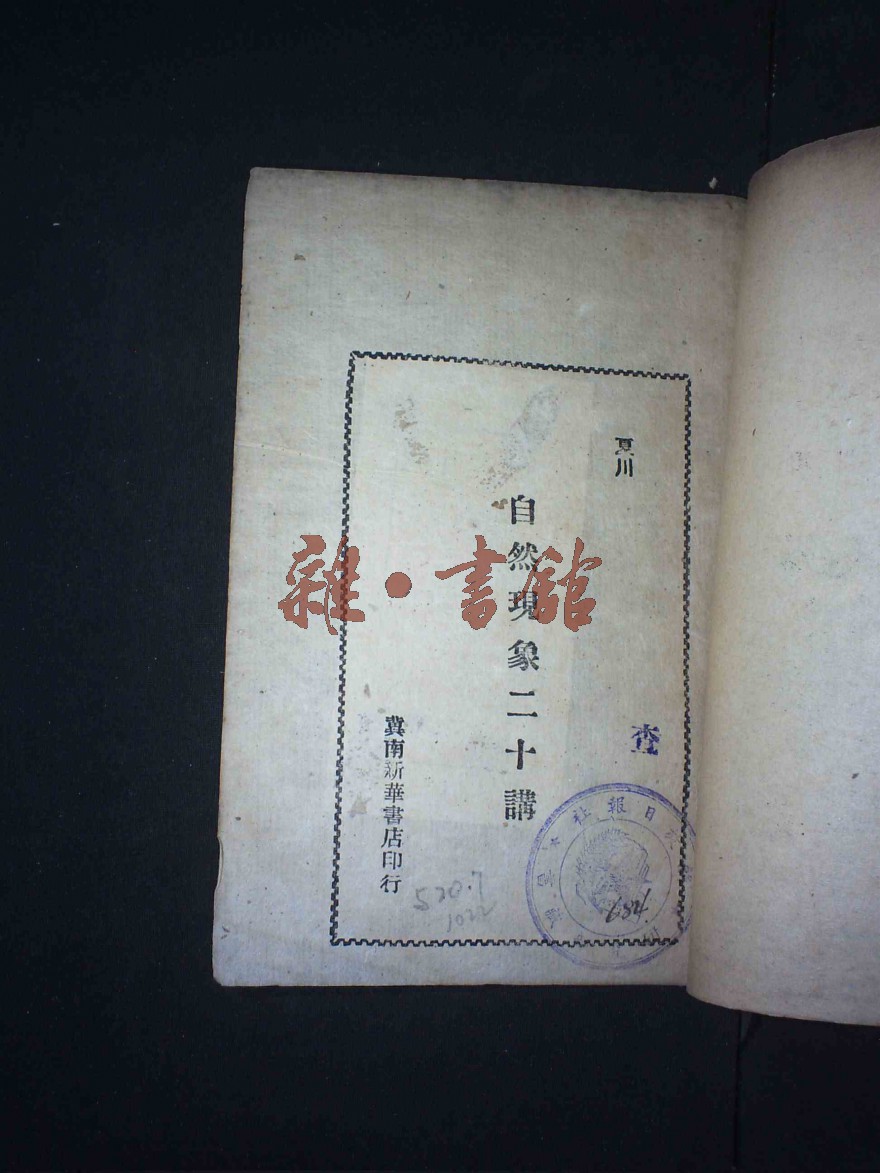 夏川
自然現象二十講
冀南新華書店印行
雜·書館
查
日報社
520.7
1022